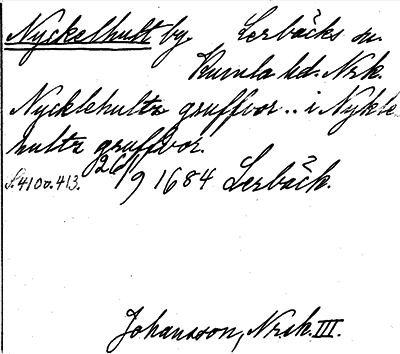 Nyckelhult by. Lerbäcks sn.
Kumla hd. Nrk.
Nycklehultz gruffvor .. i Nykle
hultz gruffvor.
S. 410 o. 413. 26/9 1684 Lerbäck.
Johansson, Nrk. III.